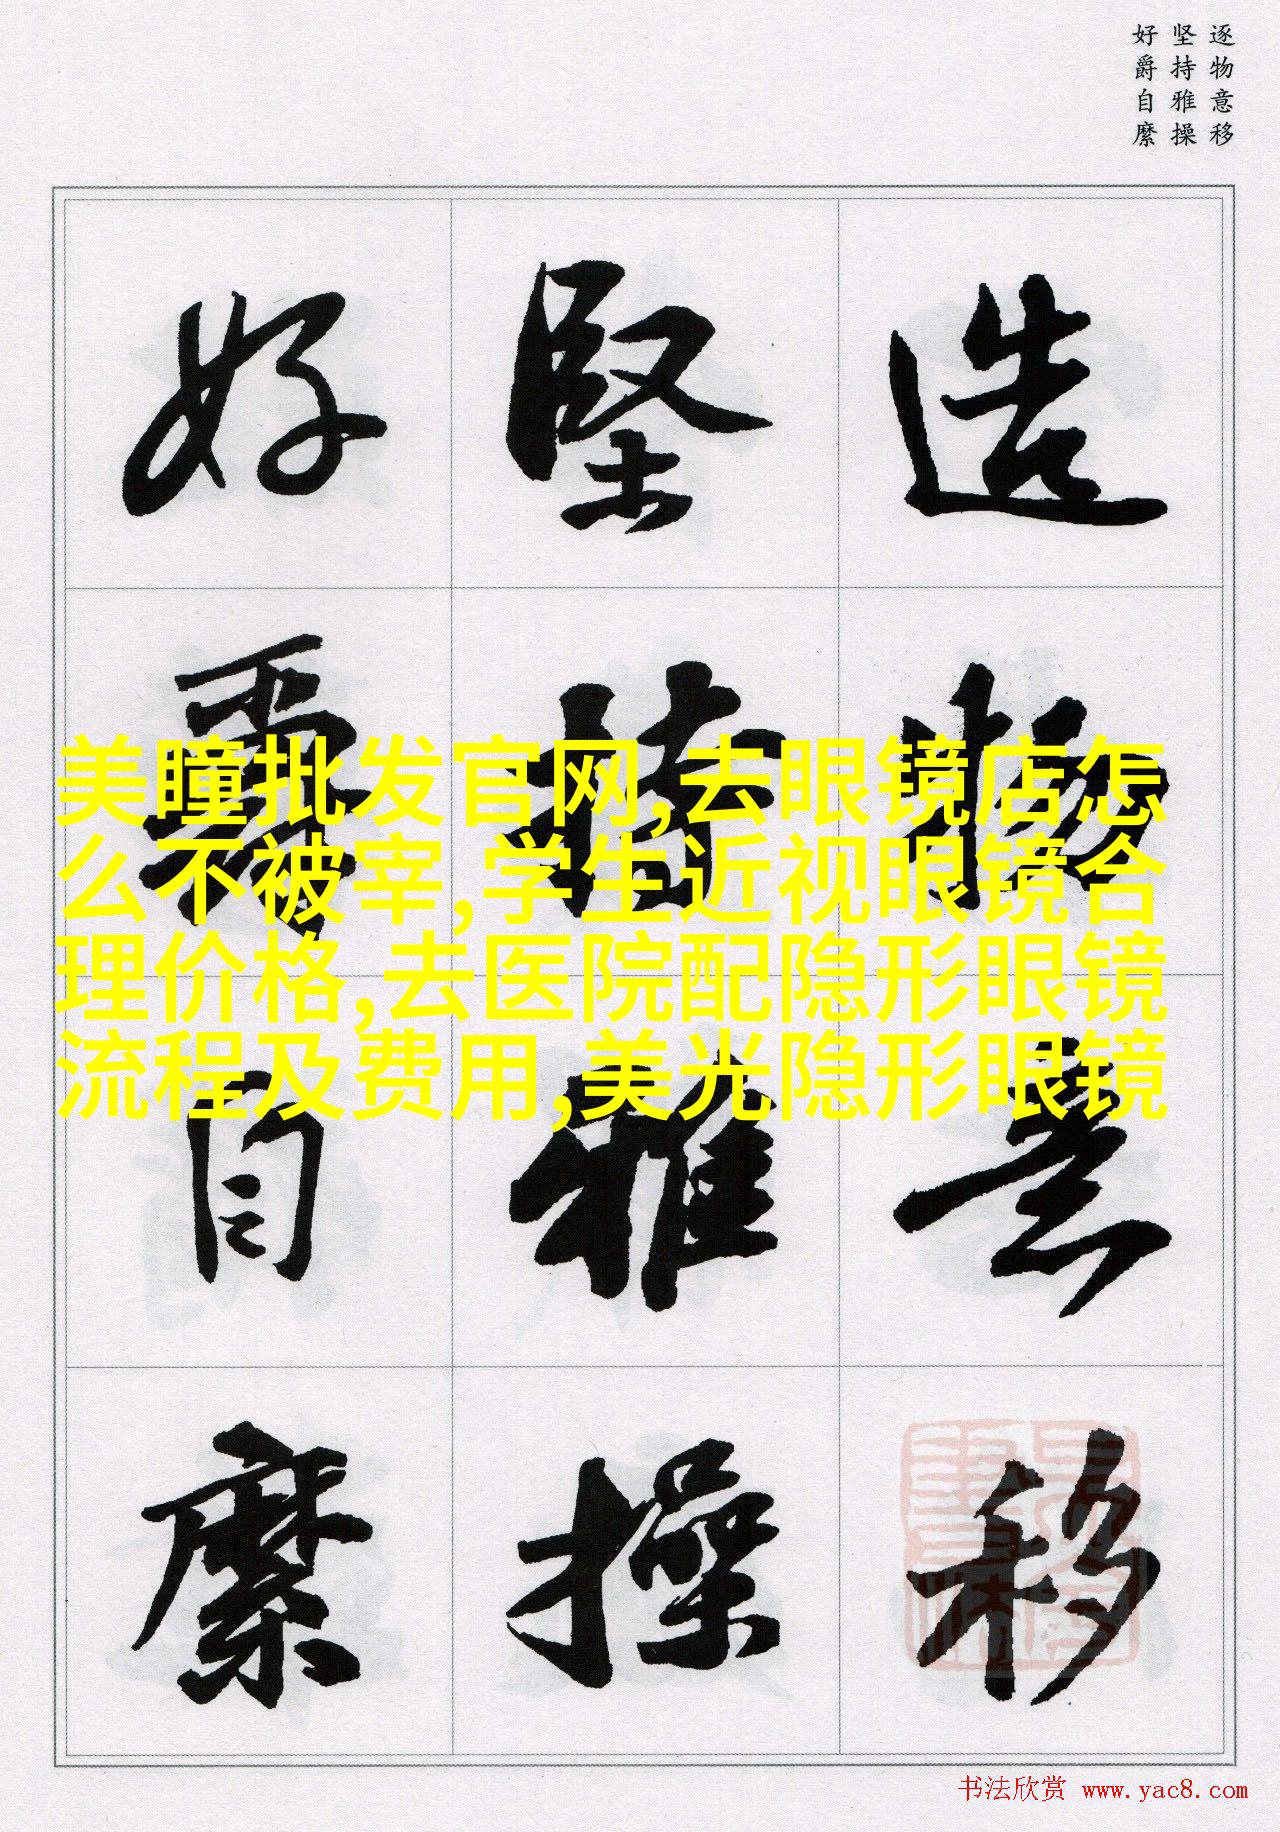 逐物意移
坚持雅操
好爵自縻
造物意移
堅持雅操
好爵自縻
美瞳批发官网,去眼镜店怎
么不被宰,学生近视眼镜合
理价格,去医院配隐形眼镜
流程及费用,美光隐形眼镜
书法欣赏 www.yac8.com